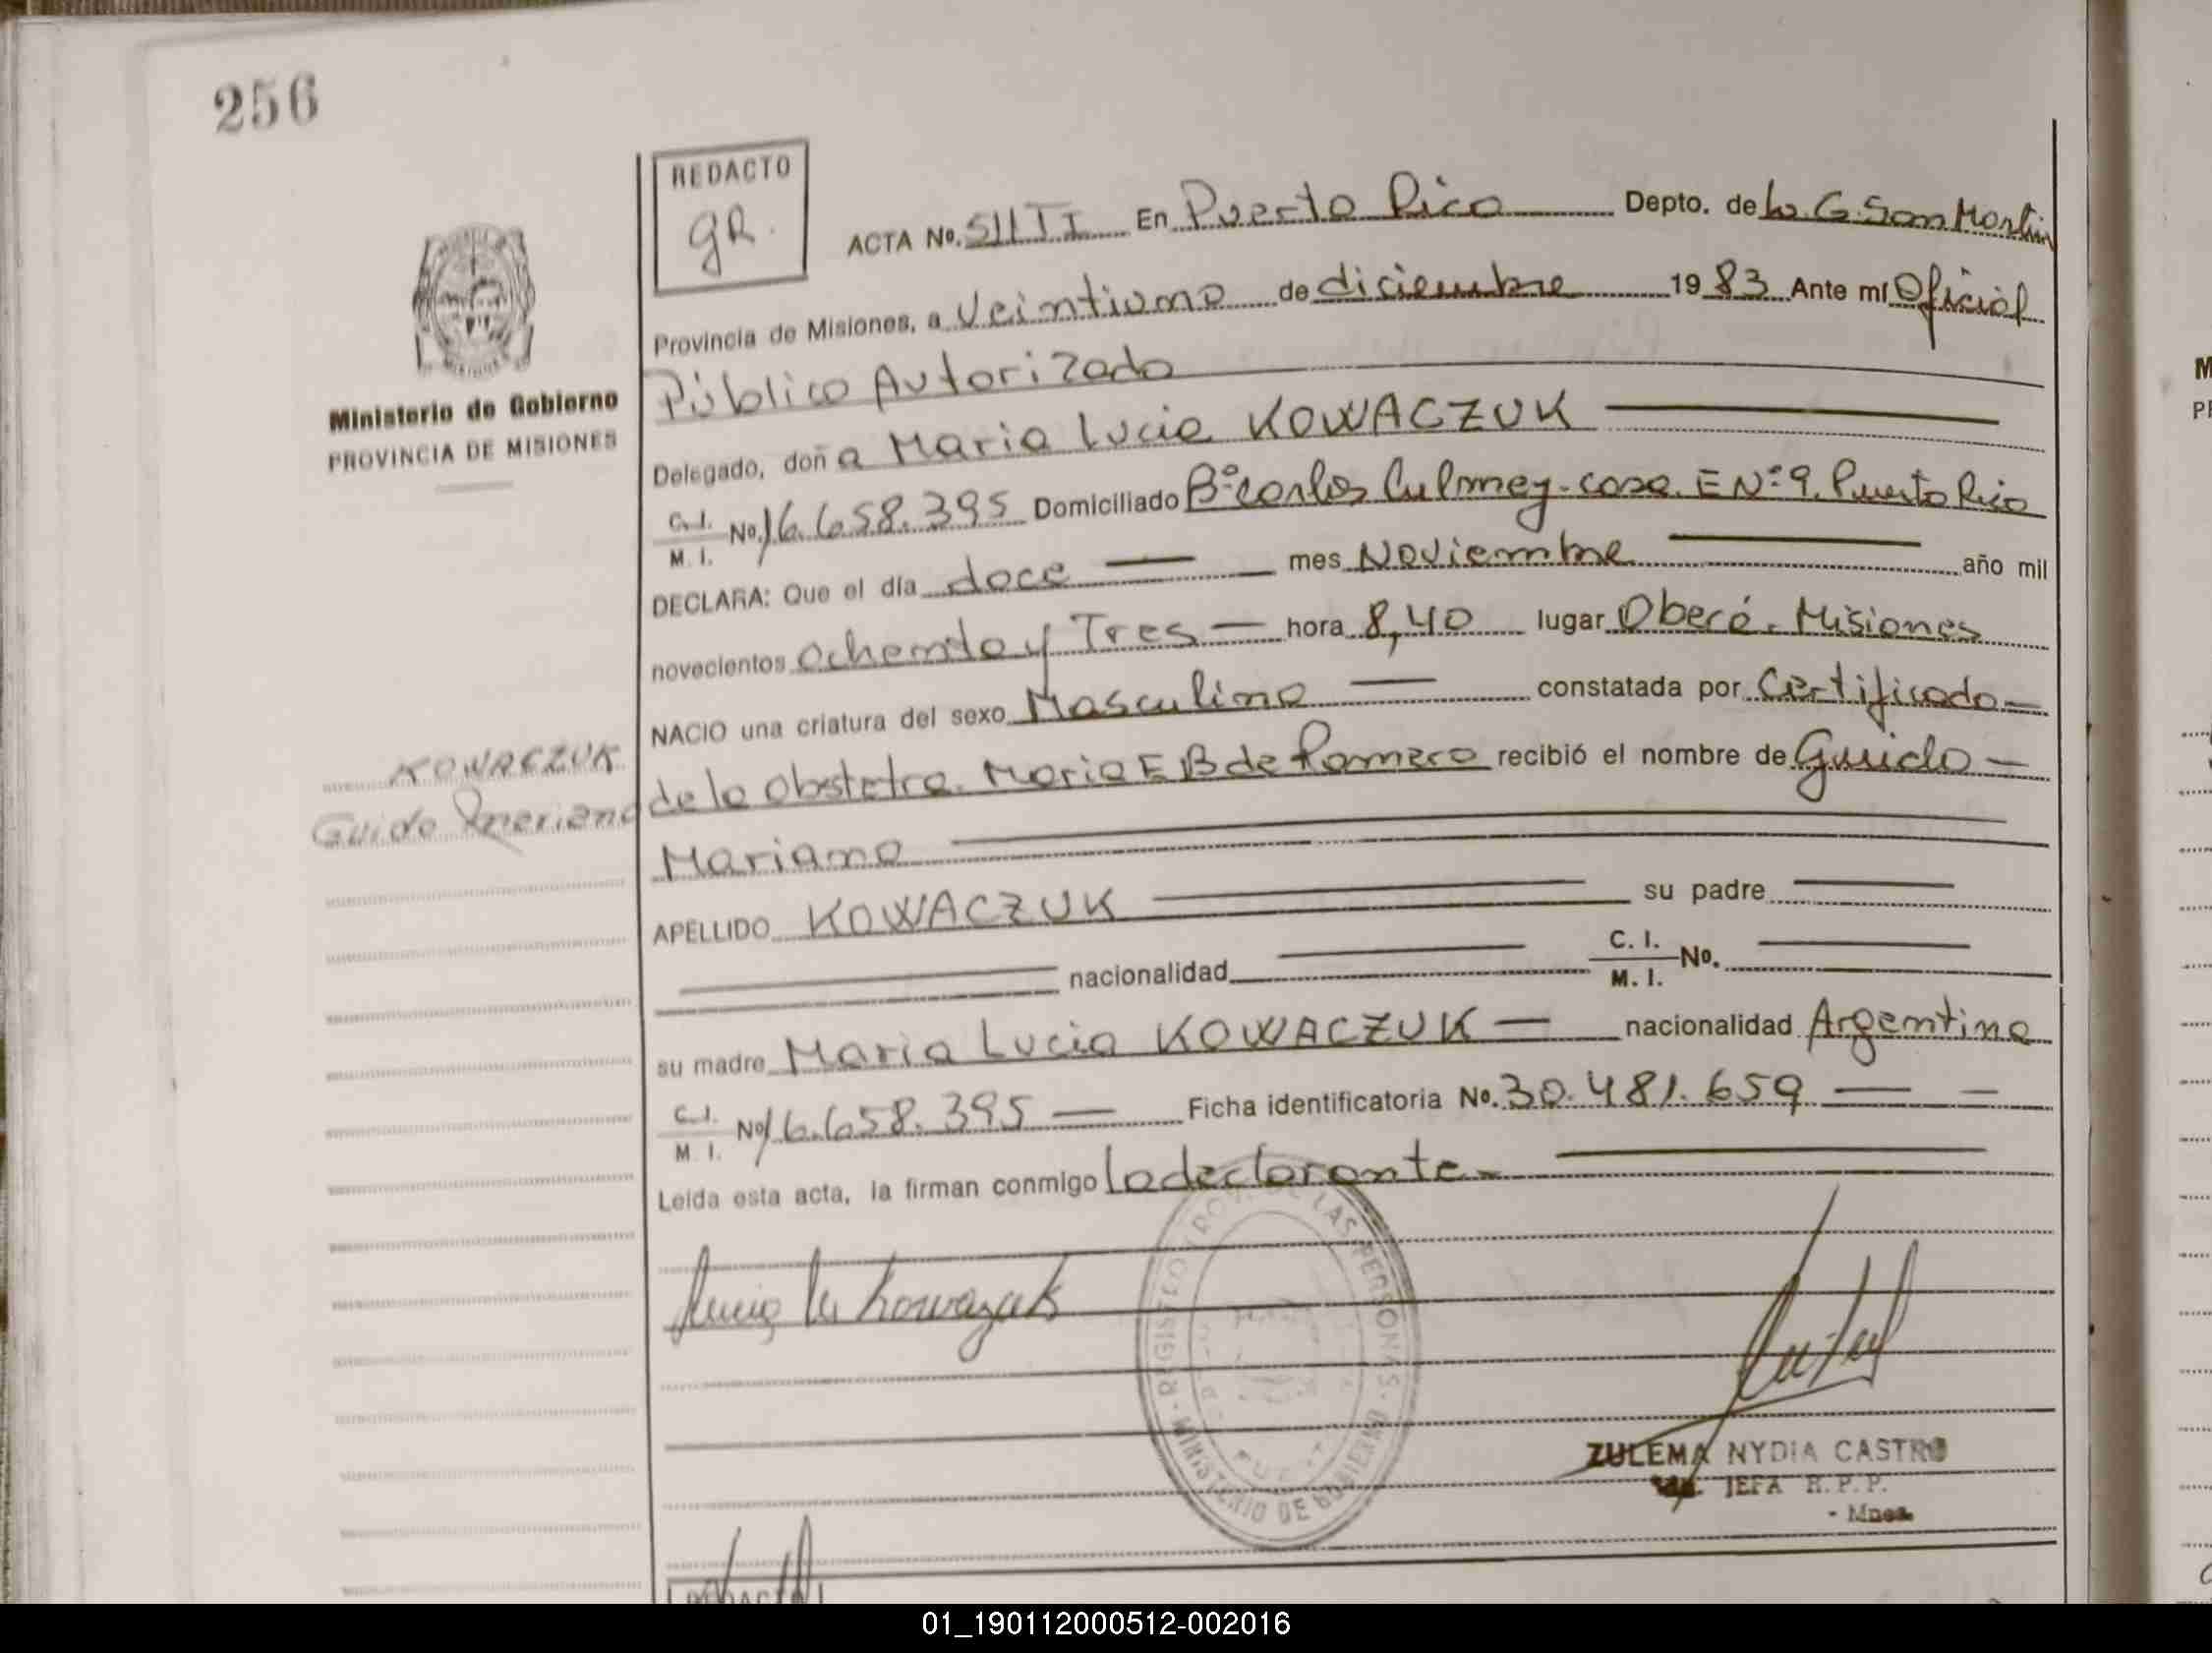 256
REDACTO
gR.
ACTA No. 511 T I En Puerto Rico Depto. de L. G. San Martin
Provincia de Misiones, a Veintiuno de diciembre 1983 Ante mí Oficial
Público Autorizado
Ministerio de Gobierno
PROVINCIA DE MISIONES
Delegado, doña Maria Lucia KOWACZUK
C. I. M. I. No. 16.658.395 Domiciliado Bº Carlos Culmey - casa. E Nº 9. Puerto Rico
DECLARA: Que el día doce mes Noviembre año mil
novecientos ochenta y Tres hora 8,40 lugar Oberá. Misiones
NACIO una criatura del sexo Masculino constatada por Certificado
KOWACZUK
de la Obstetra. Maria E B de Romero recibió el nombre de Guido
Guido Mariano
Mariano
APELLIDO KOWACZUK su padre
nacionalidad C. I. M. I. No.
su madre Maria Lucia KOWACZUK nacionalidad Argentina
C. I. M. I. No 16.658.395 Ficha identificatoria No. 30.481.659
Leída esta acta, la firman conmigo la declarante
REGISTRO PROV. DE LAS PERSONAS - MINISTERIO DE GOBIERNO
ZULEMA NYDIA CASTRO
JEFA R. P. P.
- Mnes.
REDACTO
01_190112000512-002016